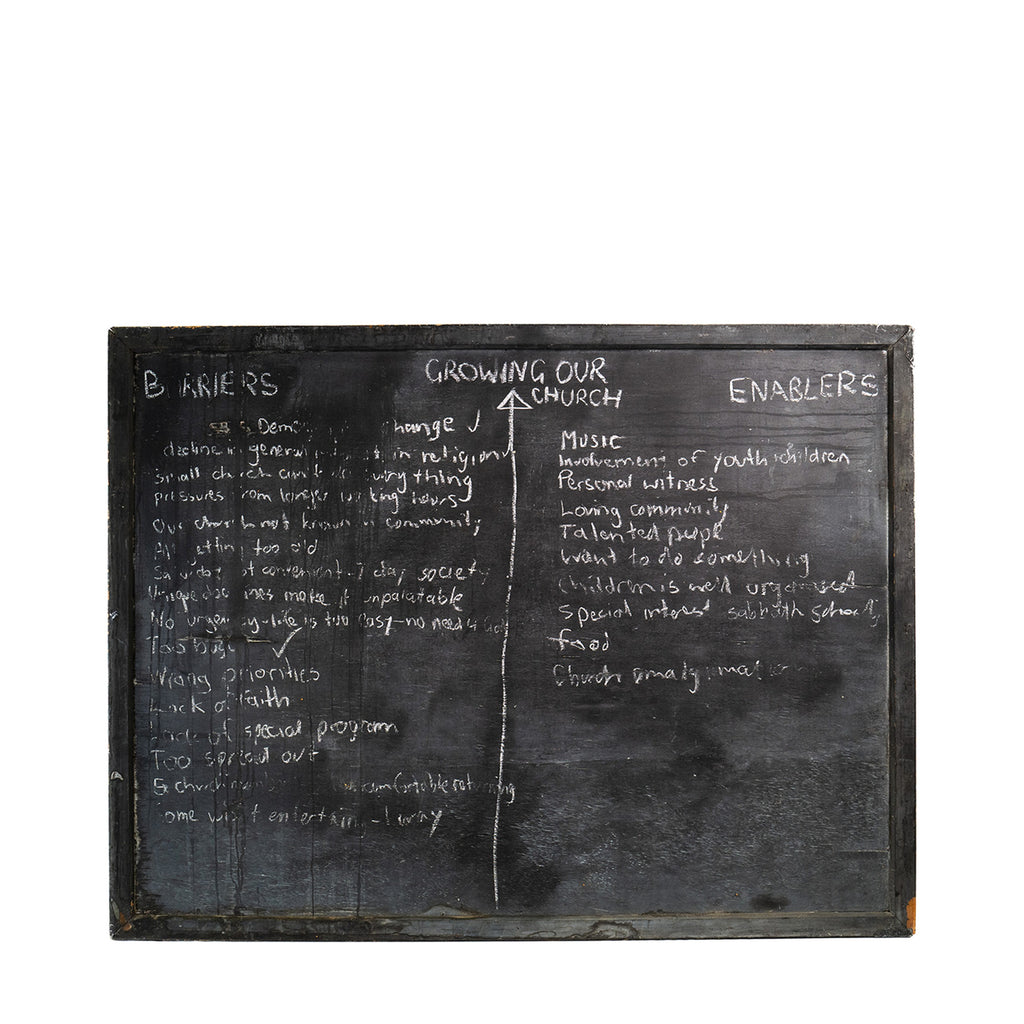 GROWING OUR
CHURCH
BARRIERS
hange
decline in general in religion
small church can't do everything
pressures from longer working hours
Our church not known in community
All getting too old
Saturday not convenient - 7 day society
Unique doctrines make it unpalatable
No urgency - life is too easy - no need
Too busy
Wrong priorities
Lack of faith
Lack of special program
Too spread out
comfortable returning
entertain
ENABLERS
Music
Involvement of youth + children
Personal witness
Loving community
Talented people
Want to do something
Children is well organised
Special interest sabbath schools
Food
Church amalgamation